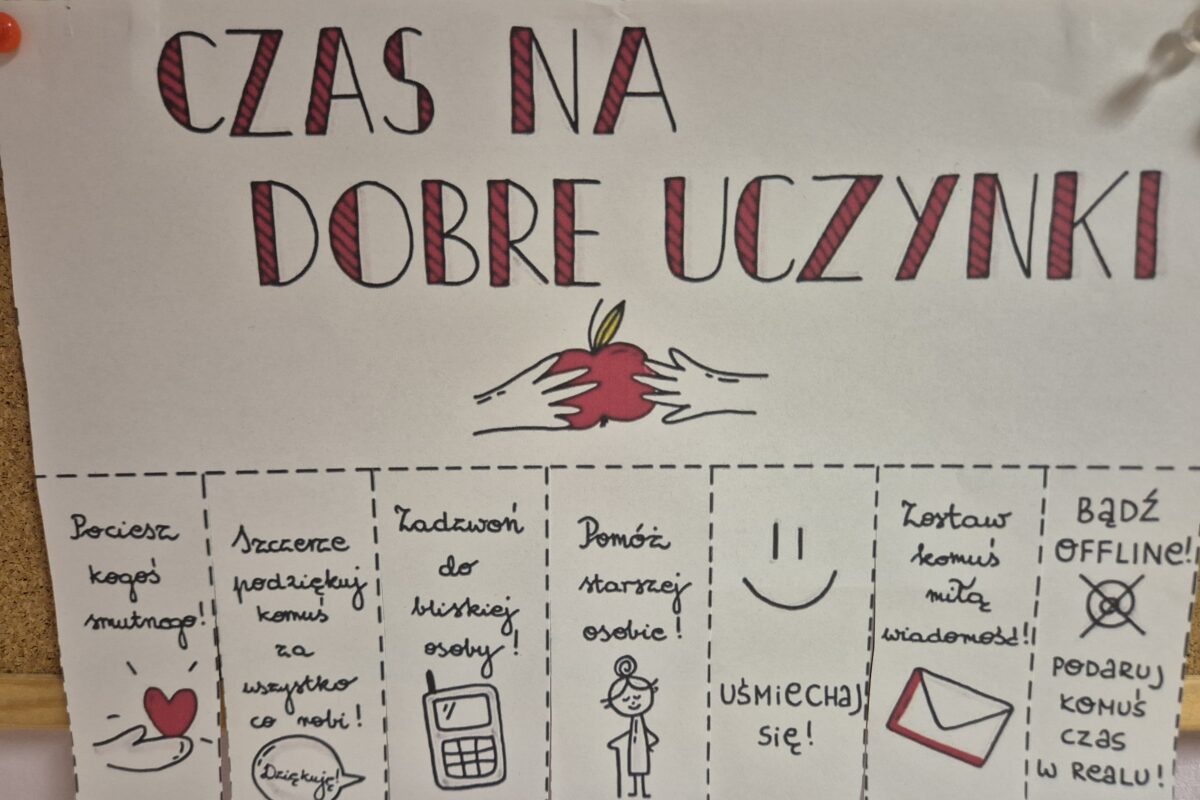 CZAS NA
DOBRE UCZYNKI
Pociesz
kogoś
smutnego!
Szczerze
podziękuj
komuś
za
wszystko
co robi!
Dziękuję!
Zadzwoń
do
bliskiej
osoby!
Pomóż
starszej
osobie!
UŚMIECHAJ
SIĘ!
Zostaw
komuś
miłą
wiadomość!
BĄDŹ
OFFLINE!
PODARUJ
KOMUŚ
CZAS
W REALU!